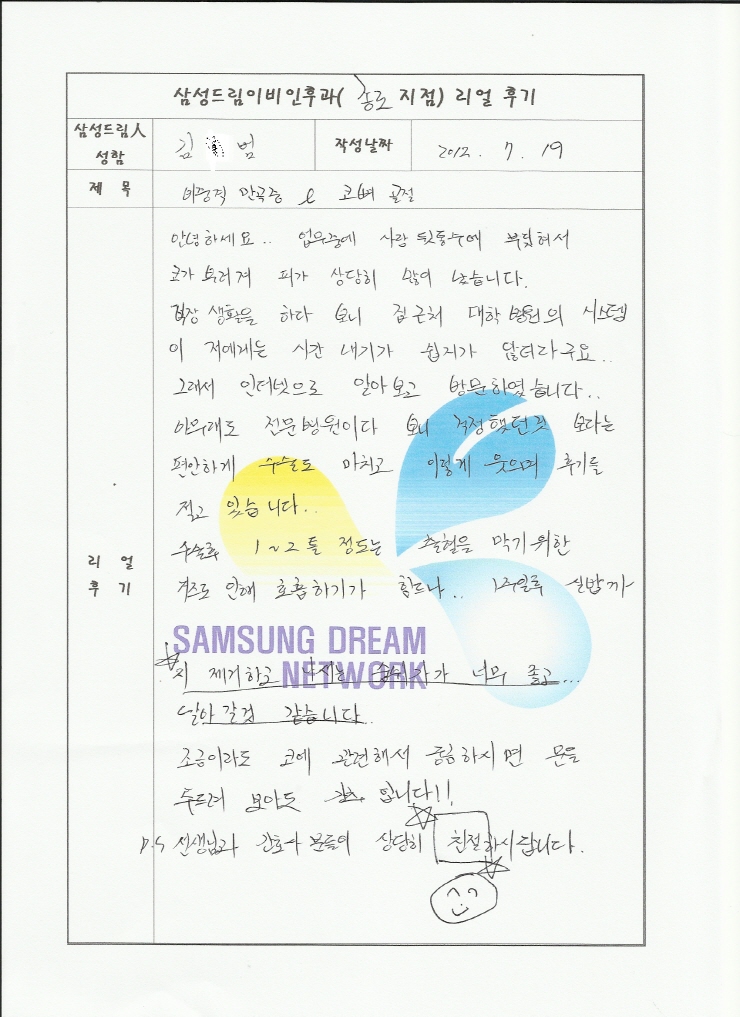 삼성드림이비인후과( 종로 지점) 리얼 후기
삼성드림人 성함
김 범
작성날짜
2012. 7. 19
제 목
비중격 만곡증 & 코뼈 골절
리 얼 후 기
안녕하세요.. 업무중에 사람 뒷통수에 부딪혀서
코가 부러져 피가 상당히 많이 났습니다.
직장 생활을 하다 보니 집근처 대학병원의 시스템
이 저에게는 시간 내기가 쉽지가 않더라구요..
그래서 인터넷으로 알아보고 방문하였습니다..
아무래도 전문병원이다 보니 걱정했던것 보다는
편안하게 수술도 마치고 이렇게 웃으며 후기를
적고 있습니다..
수술후 1~2틀 정도는 출혈을 막기위한
거즈로 인해 호흡하기가 힘드나.. 1주일후 실밥까
SAMSUNG DREAM
NETWORK
지 제거하고 나서는 너무 좋고...
날아갈것 같습니다..
조금이라도 코에 관련해서 궁금하시면 문을
두드려 보아도 입니다!!
P.S 선생님과 간호사 분들이 상당히 친절하시답니다.